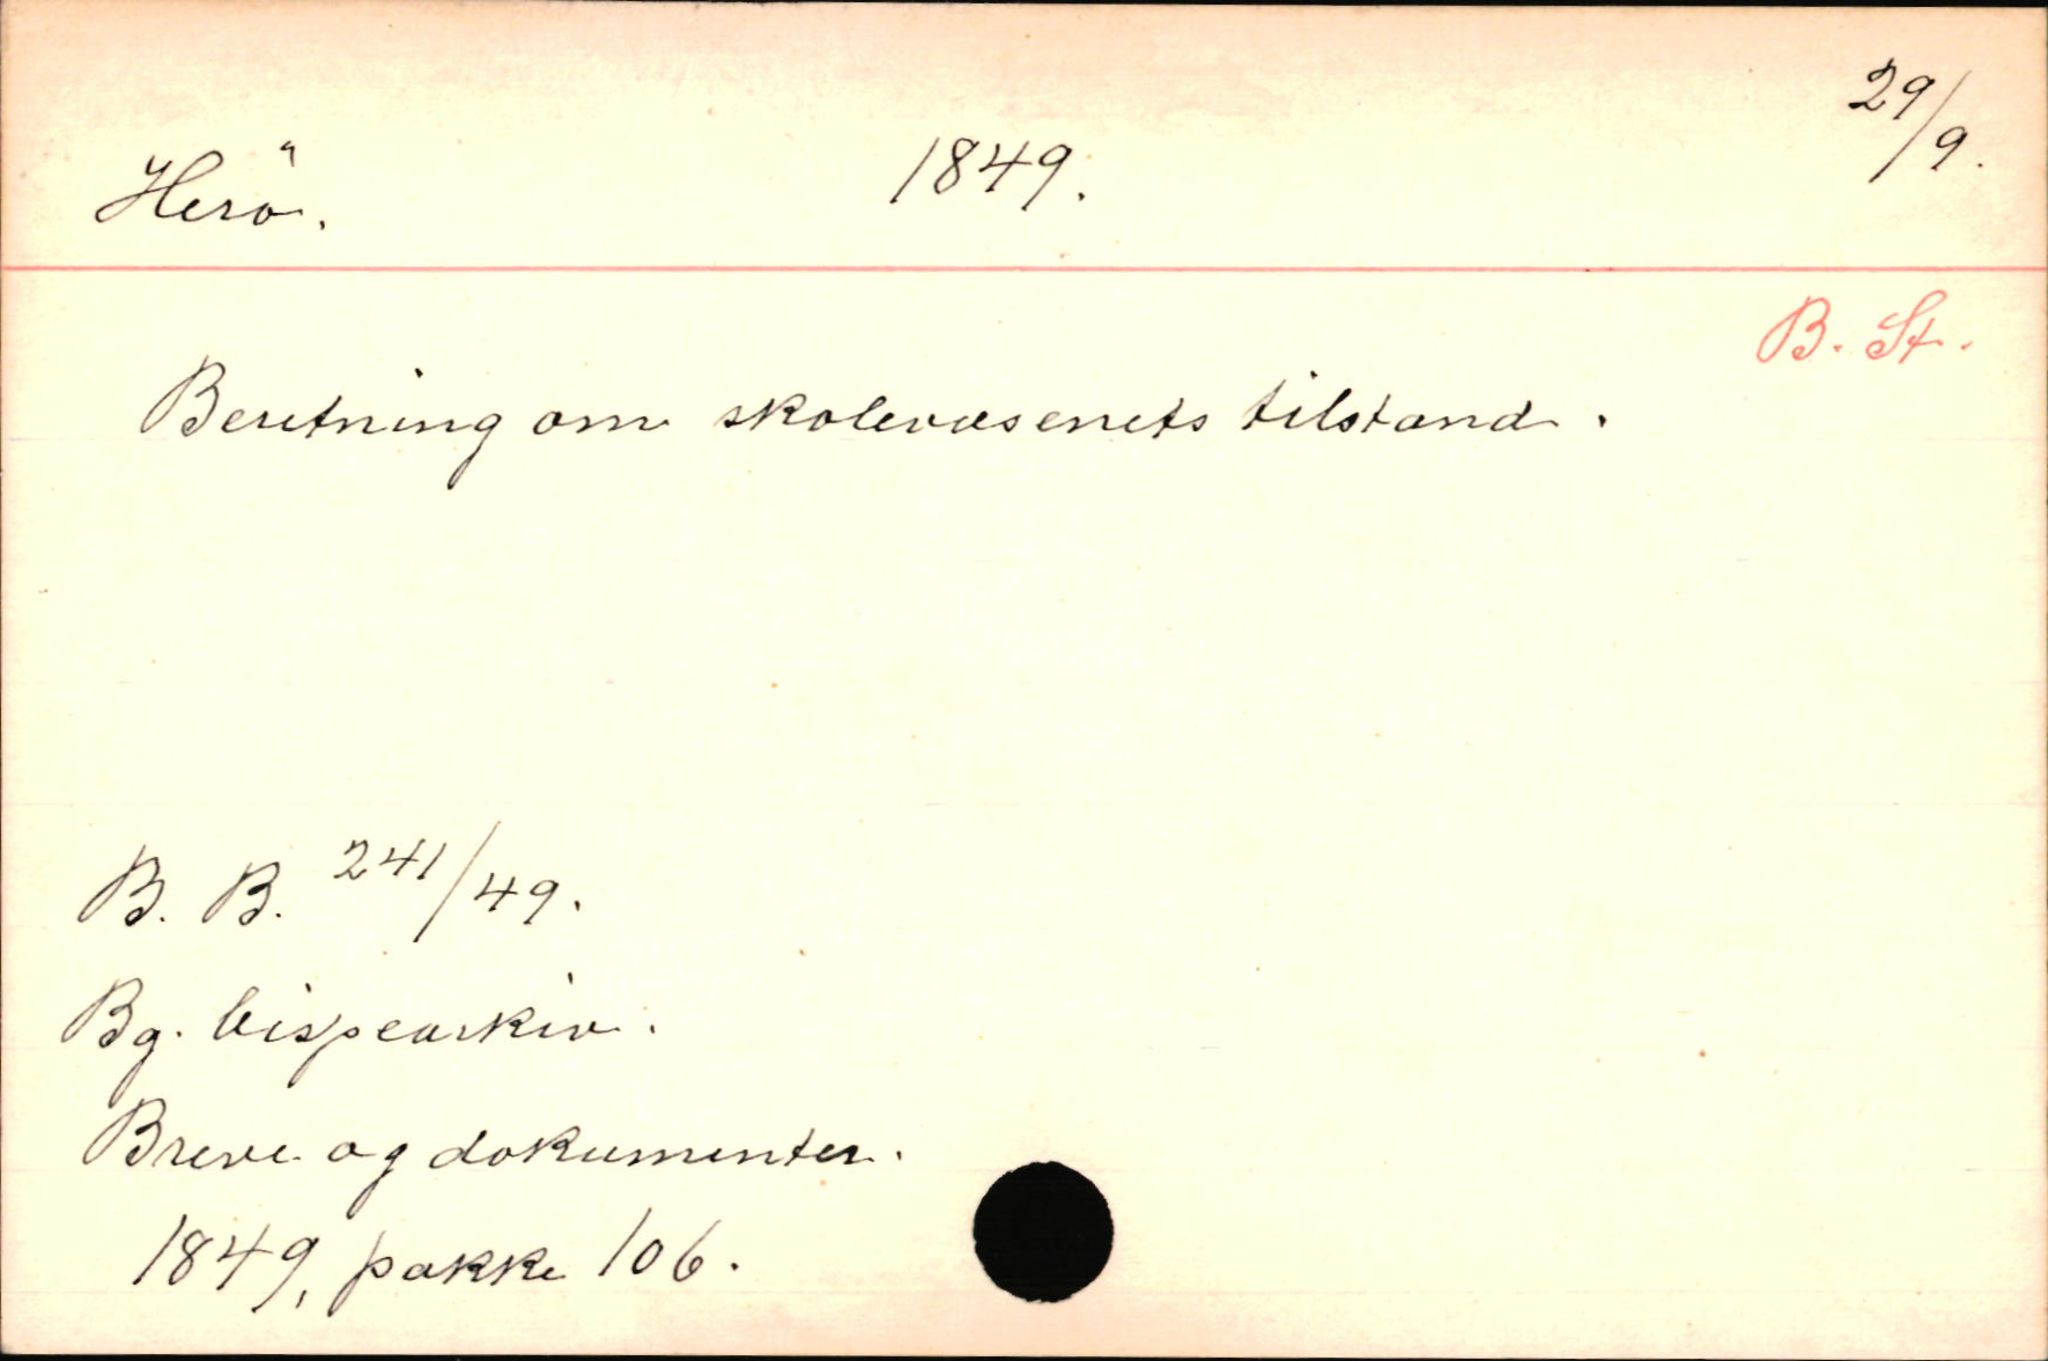 Herö. 1849. 29/9.
B. St.
Beretning om skolevæsenets tilstand.
B. B. 241/49.
Bg. bispearkiv.
Breve og dokumenter.
1849, pakke 106.